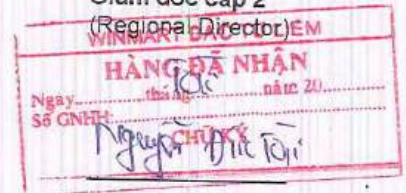 Giám đốc cấp 2
(Regional Director)
WINMART
HÀNG ĐÃ NHẬN
Tới
Ngày.............tháng.............năm 20.........
Số GNHH:
CHỮ KÝ
Nguyễn Đức Tới